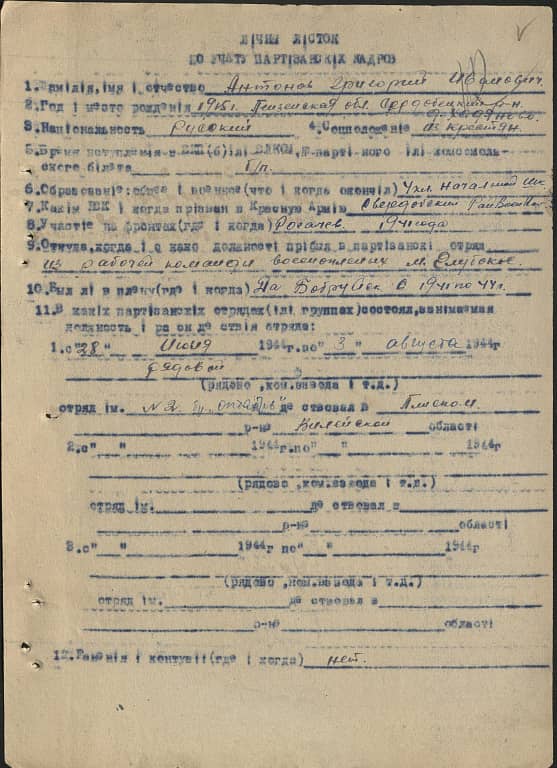 ЛІЧНЫ ЛІСТОК
ПО УЧЕТУ ПАРТІЗАНСКІХ КАДРОВ
1. Фамілія, імя і отчество Антонов Григорий Иванович
2. Год і место рождзнія 1915г. Пензенская обл. Сердобский р-н.
3. Національность Русский 4. Соцположеніе из крестьян.
5. Время вступленія в ВКП(б)ілі ВЛКСМ, № партійного ілі комсомоль-
ского білета б/п.
6. Образованіе: общее і военное(что і когда окончіл) 4 кл.
7. Какім РВК і когда прізван в Красную Армію Сердобский
8. Участіе на фронтах(где і когда) Рогачев. 1941 года
9. Откуда, когда і с какой должності прібыл в партізанскі отряд
из рабочей команды военнопленных м.
10. Был лі в плену(где і когда) На Бобруйск с 1941 по 44 г.
11. В какіх партізанскіх отрядах(ілі группах)состоял, занімаемая
должность і ра он де ствія отряда:
1. с "28" Июня 1944 г. по " 3 " августа 1944г
рядовой
(рядово , ком. взвода і т.д.)
отряд ім. №2 де ствовал в Плиском.
р-не Вилейской області
2. с " " 1944 г. по " " 1944г.
(рядово , ком. взвода і т.д.)
отряд ім. де ствовал в
р-не області
3. с " " 1944г по " " 1944г
(рядово , ком. взвода і т.д.)
отряд ім. де ствовал в
р-не області
12. Раненія і контузіі(где і когда) нет.